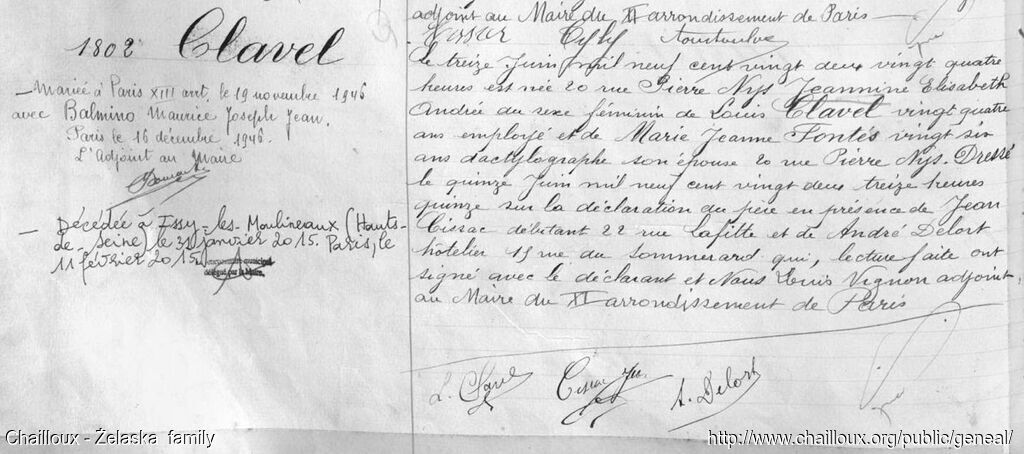 1802 Clavel
_ Mariée à Paris XIII arrt. le 19 novembre 1946
avec Balmino Maurice Joseph Jean.
Paris le 16 décembre 1946.
L'Adjoint au Maire
_ Décédée à Issy-les-Moulineaux (Hauts-
de-Seine) le 31 janvier 2015. Paris, le
11 février 2015
adjoint au Maire du XI arrondissement de Paris
Le treize Juin mil neuf cent vingt deux vingt quatre
heures est née 20 rue Pierre Nys Jeannine Elisabeth
Andrée du sexe féminin de Louis Clavel vingt quatre
ans employé et de Marie Jeanne Fontés vingt six
ans dactylographe son épouse 20 rue Pierre Nys. Dressé
le quinze Juin mil neuf cent vingt deux treize heures
quinze sur la déclaration du père en présence de Jean
Cissac débitant 22 rue Lafitte et de André Delort
hôtelier 15 rue du Sommerard qui, lecture faite ont
signé avec le déclarant et Nous Louis Vignon adjoint
au Maire du XI arrondissement de Paris
L. Clavel Cissac A. Delort
Chailloux - Želaska family
http://www.chailloux.org/public/geneal/